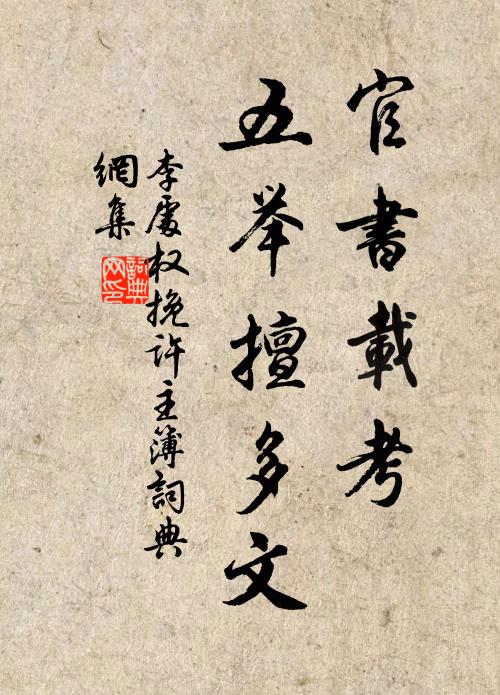 官書載考
五举擅多文
李處权挽許主簿詞典
網集
詞典
网印